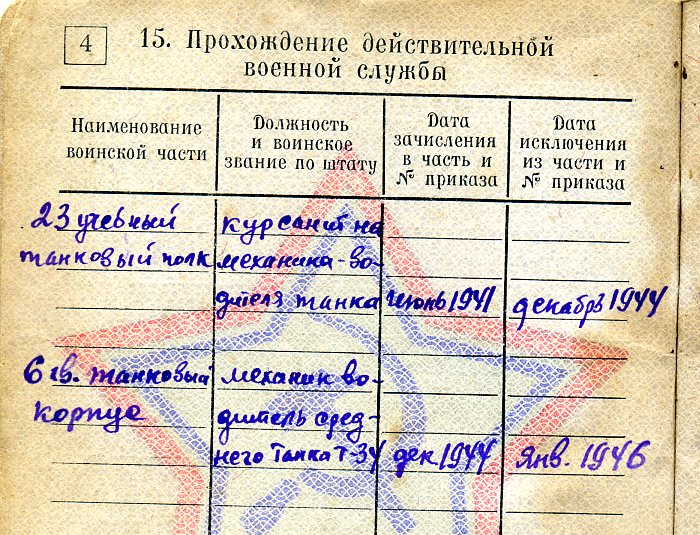 4
15. Прохождение действительной
военной службы
Наименование
воинской части
Должность
и воинское
звание по штату
Дата
зачисления
в часть и
№ приказа
Дата
исключения
из части и
№ приказа
23 учебный
танковый полк
курсант на
механика-во-
дителя танка
июль 1941
декабрь 1944
6 гв. танковый
корпус
механик во-
дитель сред-
него танка Т-34
дек 1944
янв. 1946